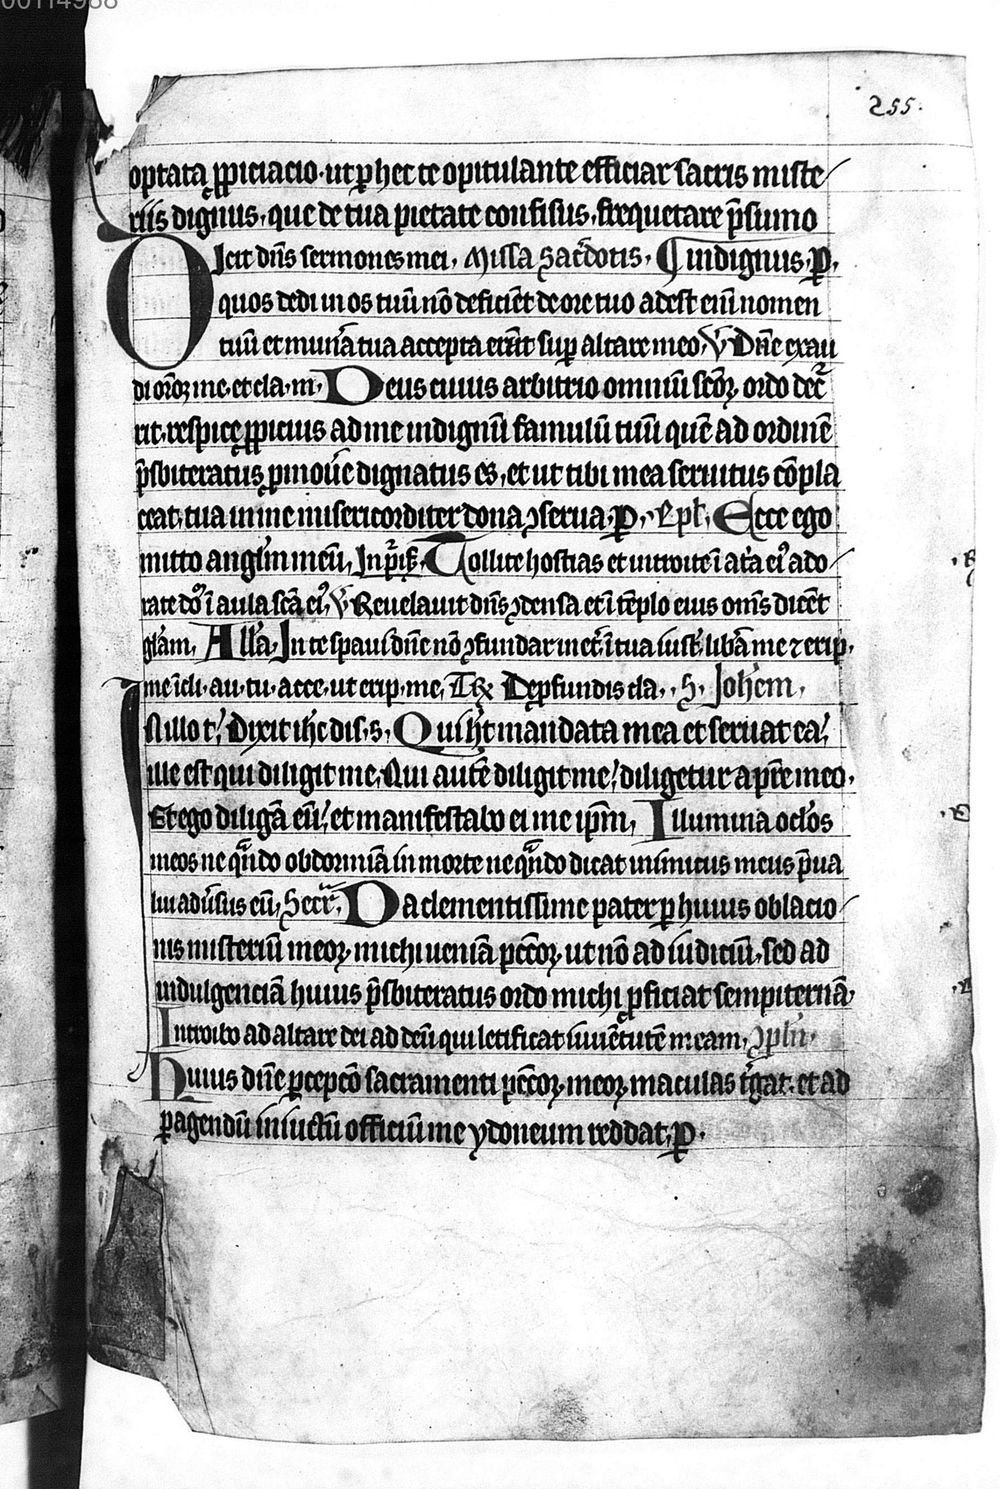 00114988
255.
optata ꝓpiciacio· ut ꝑ hec te opitulante efficiar sacris miste
riis dignus, que de tua pietate confisus, frequẽtare p̃sumo
Dicit dñs sermones mei, Missa sac̃dotis, indignus, P.
quos dedi in os tuũ nõ deficiẽt de ore tuo adest eni᷑ nomen
tuũ et mun̾a tua accepta er̾ũt suꝑ altare meo, V Dñe exau
di or̃oꝫ me, et cla· m· Deus cuius arbitrio omniũ sc̃oꝝ ordo decr̃
rit, respice ꝓpicius ad me indignũ famulũ tuũ quẽ ad ordinẽ
p̃sbiteratus ꝓmou̾e dignatus es, et ut tibi mea seruitus cõpla
ceat, tua in me misericorditer dona ꝯserua, P, Epl̃, Ecce ego
mitto angl̃m meũ, In p̾ncĩꝑ, Tollite hostias et introite ĩ atr̾a ei᷒ ado
rate dñ᷒ ĩ aula sc̃a ei᷒, V Reuelauit dñs ꝯdensa et ĩ tẽplo eius om̃s dicẽt
gl̃am, All̃a, In te sp̾aui dñe nõ ꝯfundar in et̾· ĩ tua iust̾· lib̾a me ⁊ erip·
me ĩcli· au· tu· acce, ut erip· me, Tr̃ De ꝓfundis cla, S, Joh̃em,
In illo t̾, Dixit ih̃c dis, s, Qui h̾t mandata mea et seruat ea,
ille est qui diligit me, Qui autẽ diligit me, diligetur a pr̃e meo,
Et ego diligã eũ, et manifestabo ei me ip̃m, Illumina oc̃los
meos ne qñdo obdormiã in morte ne qñdo dicat inimicus meus p̃ua
lui adu̾sus eũ, Secr̃, Da clementissime pater ꝑ huius oblacio
nis misteriũ meoꝝ, michi ueniã pc̃coꝝ, ut nõ ad iudiciũ, sed ad
indulgenciã huius p̃sbiteratus ordo michi ꝓficiat sempiternã,
Introibo ad altare dei ad deũ qui letificat iuuẽtutẽ meam, ꝯpl̃n,
Huius dñe ꝑcepcõ sacramenti pc̃coꝝ, meoꝝ, maculas t̾gat, et ad
ꝑagendũ iniũctũ officiũ me ydoneum reddat, P,